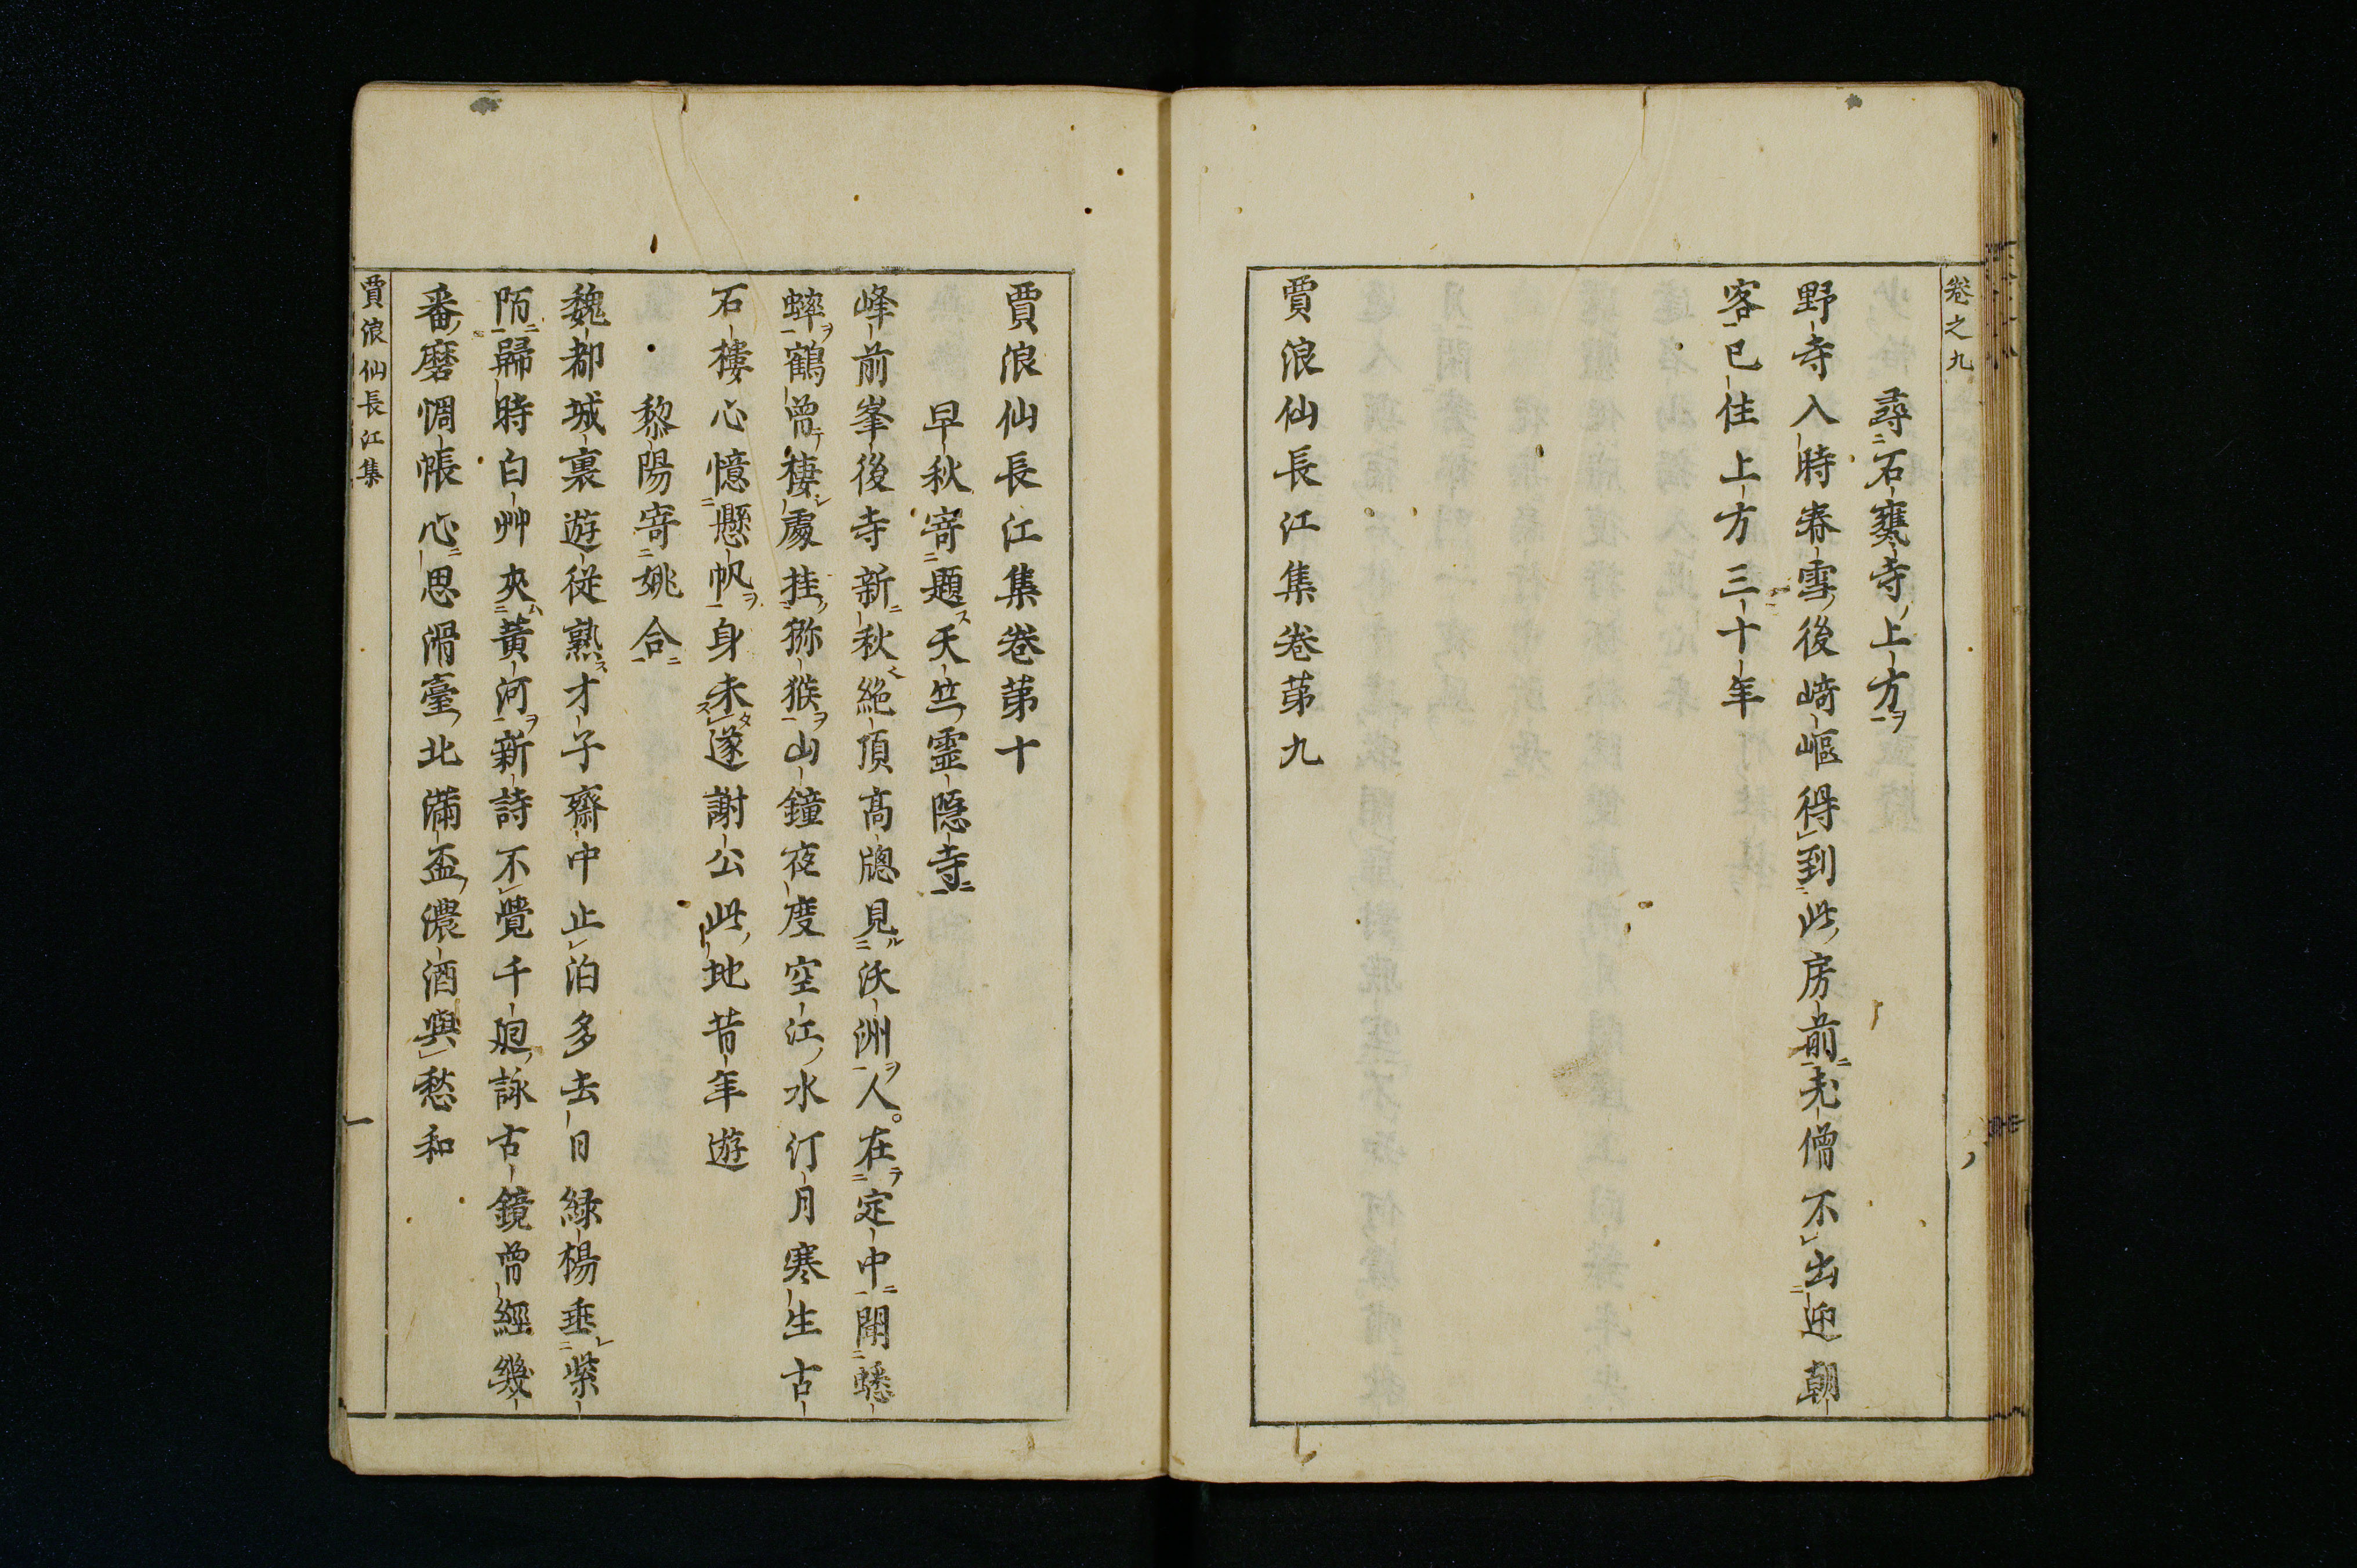 卷之九
尋石甕寺上方
野寺入時春雪後崎嶇得到此房前老僧不出迎朝
客已住上方三十年
賈浪仙長江集卷苐九
賈浪仙長江集卷苐十
早秋寄題天竺霊隠寺
峰前峯後寺新秋絶頂高牕見沃洲人在定中聞蟋
蟀鶴曾棲處挂猕猴山鐘夜度空江水汀月寒生古
石樓心憶懸帆身未遂謝公此地昔年遊
黎陽寄姚合
魏都城裏遊従熟才子齋中止泊多去日緑楊垂紫
陌歸時白艸夾黃河新詩不覺千廻詠古鏡曾經幾
番磨惆帳心思滑臺北滿盃濃酒與愁和
賈浪仙長江集
一